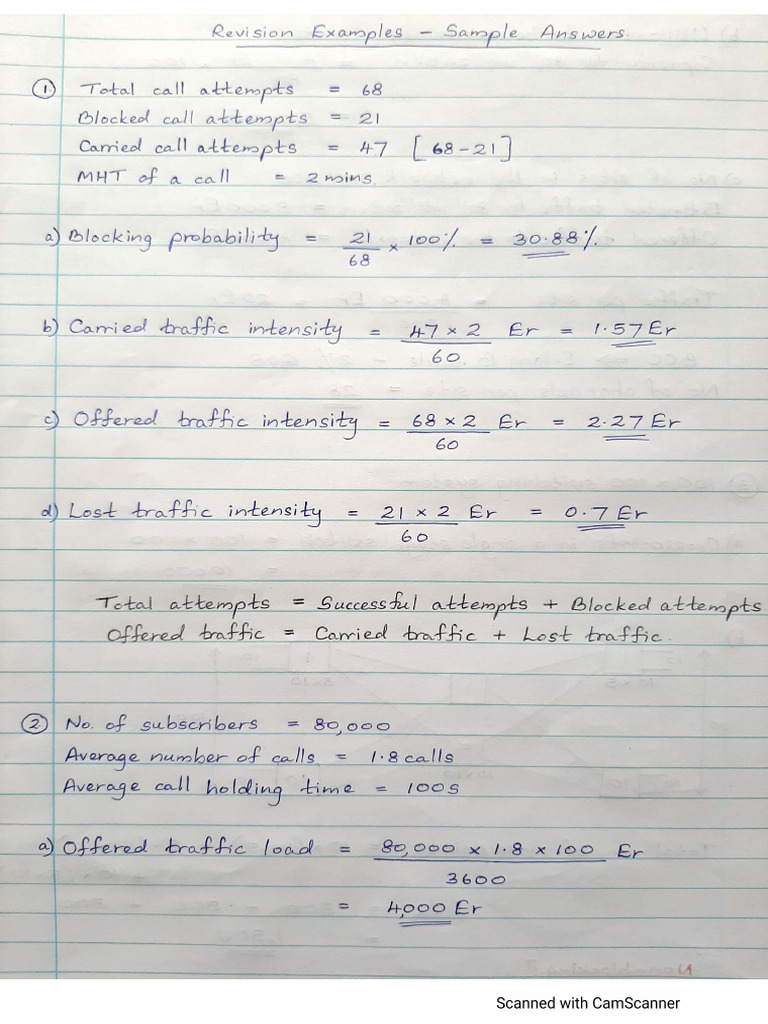 Revision Examples - Sample Answers
① Total call attempts = 68
Blocked call attempts = 21
Carried call attempts = 47 [68-21]
MHT of a call = 2 mins.
a) Blocking probability = 21/68 × 100% = 30.88%
b) Carried traffic intensity = 47 × 2/60 Er = 1.57 Er
c) Offered traffic intensity = 68 × 2/60 Er = 2.27 Er
d) Lost traffic intensity = 21 × 2/60 Er = 0.7 Er
Total attempts = Successful attempts + Blocked attempts
Offered traffic = Carried traffic + Lost traffic.
② No. of subscribers = 80,000
Average number of calls = 1.8 calls
Average call holding time = 100s
a) Offered traffic load = 80,000 × 1.8 × 100/3600 Er
= 4,000 Er
Scanned with CamScanner